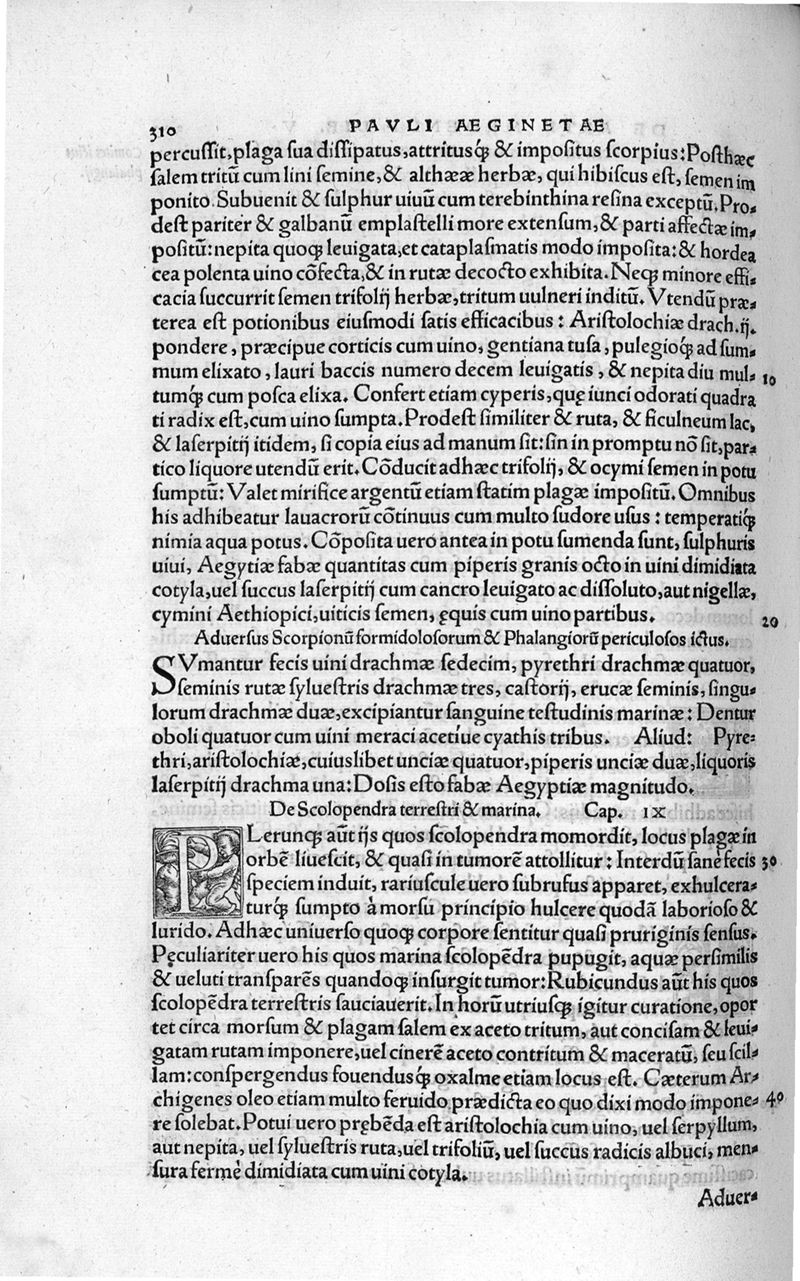 310 PAVLI AEGINETAE
percussit, plaga sua dissipatus, attritusq́; & impositus scorpius: Posthæc
salem tritũ cum lini semine, & althææ herbæ, qui hibiscus est, semen im
ponito. Subuenit & sulphur uiuũ cum terebinthina resina exceptũ. Pro-
dest pariter & galbanũ emplastelli more extensum, & parti affectæ im-
positũ: nepita quoq; leuigata, et cataplasmatis modo imposita: & hordea
cea polenta uino cõfecta, & in rutæ decocto exhibita. Neq; minore effi-
cacia succurrit semen trifolij herbæ, tritum uulneri inditũ. Vtendũ præ-
terea est potionibus eiusmodi satis efficacibus: Aristolochiæ drach.ij.
pondere, præcipue corticis cum uino, gentiana tusa, pulegioq́; ad sum-
mum elixato, lauri baccis numero decem leuigatis, & nepita diu mul- 10
tumq́; cum posca elixa. Confert etiam cyperis, quę iunci odorati quadra
ti radix est, cum uino sumpta. Prodest similiter & ruta, & ficulneum lac,
& laserpitij itidem, si copia eius ad manum sit: sin in promptu nõ sit, par-
tico liquore utendũ erit. Cõducit adhæc trifolij, & ocymi semen in potu
sumptũ: Valet mirifice argentũ etiam statim plagæ impositũ. Omnibus
his adhibeatur lauacrorũ cõtinuus cum multo sudore usus: temperatiq́;
nimia aqua potus. Cõposita uero antea in potu sumenda sunt, sulphuris
uiui, Aegytiæ fabæ quantitas cum piperis granis octo in uini dimidiata
cotyla, uel succus laserpitij cum cancro leuigato ac dissoluto, aut nigellæ,
cymini Aethiopici, uiticis semen, ęquis cum uino partibus. 20
Aduersus Scorpionũ formidolosorum & Phalangiorũ periculosos ictus.
SVmantur fecis uini drachmæ sedecim, pyrethri drachmæ quatuor,
seminis rutæ syluestris drachmæ tres, castorij, erucæ seminis, singu-
lorum drachmæ duæ, excipiantur sanguine testudinis marinæ: Dentur
oboli quatuor cum uini meraci acetiue cyathis tribus. Aliud: Pyre-
thri, aristolochiæ, cuiuslibet unciæ quatuor, piperis unciæ duæ, liquoris
laserpitij drachma una: Dosis esto fabæ Aegyptiæ magnitudo.
De Scolopendra terrestri & marina. Cap. IX
PLerunq; aũt ijs quos scolopendra momordit, locus plagæ in
orbẽ liuescit, & quasi in tumorẽ attollitur: Interdũ sanè fecis 30
speciem induit, rariuscule uero subrufus apparet, exhulcera-
turq́; sumpto à morsu principio hulcere quodã laborioso &
lurido. Adhæc uniuerso quoq; corpore sentitur quasi pruriginis sensus.
Peculiariter uero his quos marina scolopẽdra pupugit, aquæ persimilis
& ueluti transparẽs quandoq; insurgit tumor: Rubicundus aũt his quos
scolopẽdra terrestris sauciauerit. In horũ utriusq; igitur curatione, opor
tet circa morsum & plagam salem ex aceto tritum, aut concisam & leui-
gatam rutam imponere, uel cinerẽ aceto contritum & maceratũ, seu scil-
lam: conspergendus fouendusq́; oxalme etiam locus est. Cæterum Ar-
chigenes oleo etiam multo feruido prædicta eo quo dixi modo impone- 40
re solebat. Potui uero prębẽda est aristolochia cum uino, uel serpyllum,
aut nepita, uel syluestris ruta, uel trifoliũ, uel succus radicis albuci, men-
sura fermè dimidiata cum uini cotyla.
Aduer-